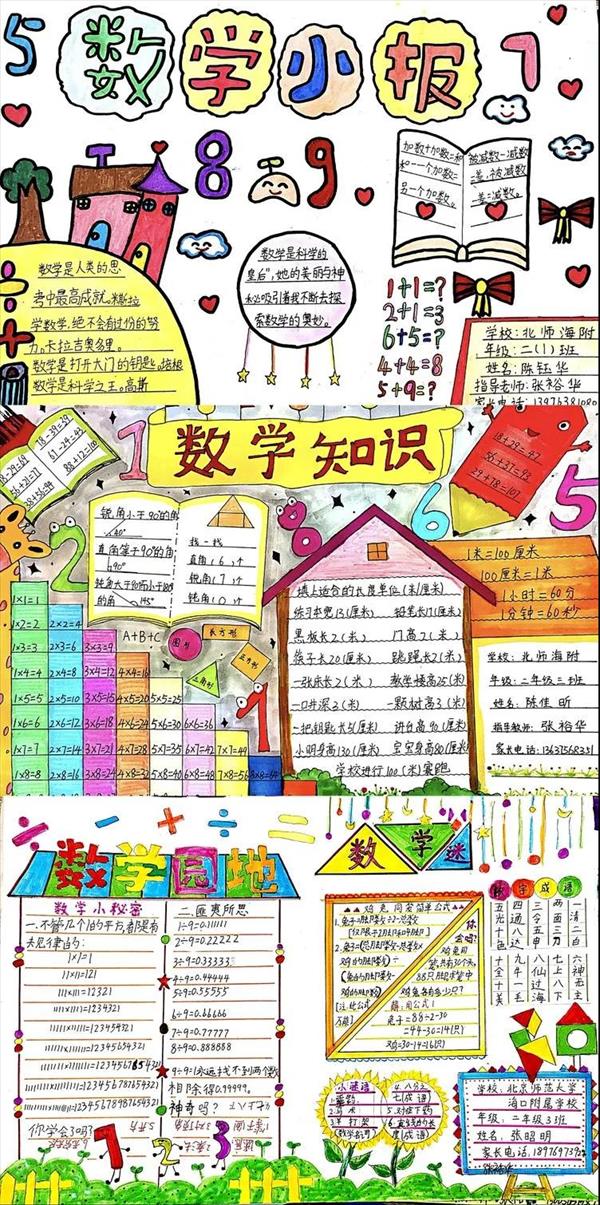 5
数学小报
7
8
9
加数+加数=和
和-一个加数=
另一个加数。
被减数-减数
=差,被减数-
差=减数。
数学是人类的思
考中最高成就。米斯拉
学数学,绝不会有过份的努
力。卡拉吉奥多里。
数学是打开大门的钥匙。培根
数学是科学之王。高斯
数学是科学的
皇后",她的美丽与神
秘吸引着我不断去探
索数学的奥妙。
1+1=?
2+1=3
6+5=?
4+4=8
5+9=?
学校:北师海附
年级:二(1)班
姓名:陈钰华
指导老师:张裕华
家长电话:13976381080
数学知识
18-29=69
56+21=77
38+56=94
78-39=39
61-24=43
88+12=100
1
2
8
6
5
18+29=47
56+37=93
29+78=107
锐角小于90°的角
40°
直角等于90°的角
90°
钝角大于90°而小于180°
的角 145°
找一找
直角(6)个
锐角(7)个
钝角(0)个
1米=100厘米
100厘米=1米
1小时=60分
1分钟=60秒
填上适合的长度单位(米/厘米)
练习本宽13(厘米) 铅笔长17(厘米)
黑板长2(米) 门高2(米)
筷子长20(厘米) 跳绳长2(米)
一张床长2(米) 教学楼高25(米)
一口井深3(米) 一颗树高3(米)
一把钥匙长5(厘米) 讲台高90(厘米)
小明身高130(厘米) 宝宝身高80(厘米)
学校进行100(米)赛跑
学校:北师海附
年级:二年级三班
姓名:陈佳昕
指导教师:张裕华
家长电话:13637568331
A+B+C
圆形
长方形
正方形
三角形
1×1=1
1×2=2 2×2=4
1×3=3 2×3=6 3×3=9
1×4=4 2×4=8 3×4=12 4×4=16
1×5=5 2×5=10 3×5=15 4×5=20 5×5=25
1×6=6 2×6=12 3×6=18 4×6=24 5×6=30 6×6=36
1×7=7 2×7=14 3×7=21 4×7=28 5×7=35 6×7=42 7×7=49
1×8=8 2×8=16 3×8=24 4×8=32 5×8=40 6×8=48 7×8=56 8×8=64
数学园地
数学小秘密
一.不管几个1的平方,都是有
去见律由的:
1×1=1
11×11=121
111×111=12321
1111×1111=1234321
11111×11111=123454321
111111×111111=12345654321
1111111×1111111=1234567654321
你学会了吗?
二.匪夷所思
1÷9=0.11111
2÷9=0.22222
3÷9=0.33333
4÷9=0.44444
5÷9=0.55555
6÷9=0.66666
7÷9=0.77777
8÷9=0.888888
9÷9=(永远找不到两个数
相除得0.99999。
神奇吗?
1 2 3
数学谜
鸡兔同笼简单公式
你会吗?
鸡兔同
笼,共有30个头,
88只脚,求笼中
鸡兔各有多少只?
解:用公式1
兔子=88÷2-30
=44-30=14(只)
鸡=30-14=16(只)
数字成语
一清二白
三令五申
四通八达
五光十色
六神无主
七上八下
八仙过海
九牛一毛
十全十美
小谜语
4.八分之
七(成语)
5.对症下药
度(成语)
学校:北京师范大学
海口附属学校
年级:二年级3班
姓名:张昭明